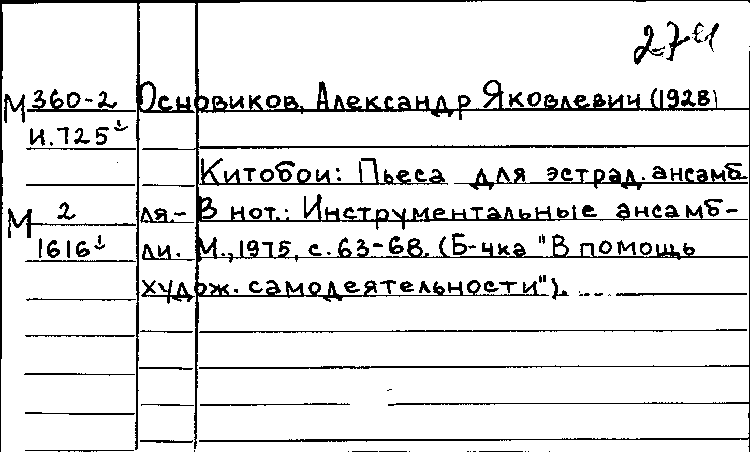 274
М 360-2 Основиков, Александр Яковлевич (1928)
и.725
Китобои: Пьеса для эстрад. ансамб
М 2 ля.- В нот.: Инструментальные ансамб-
1616 ли. М., 1975, с. 63-68. (Б-чка "В помощь
худож. самодеятельности").